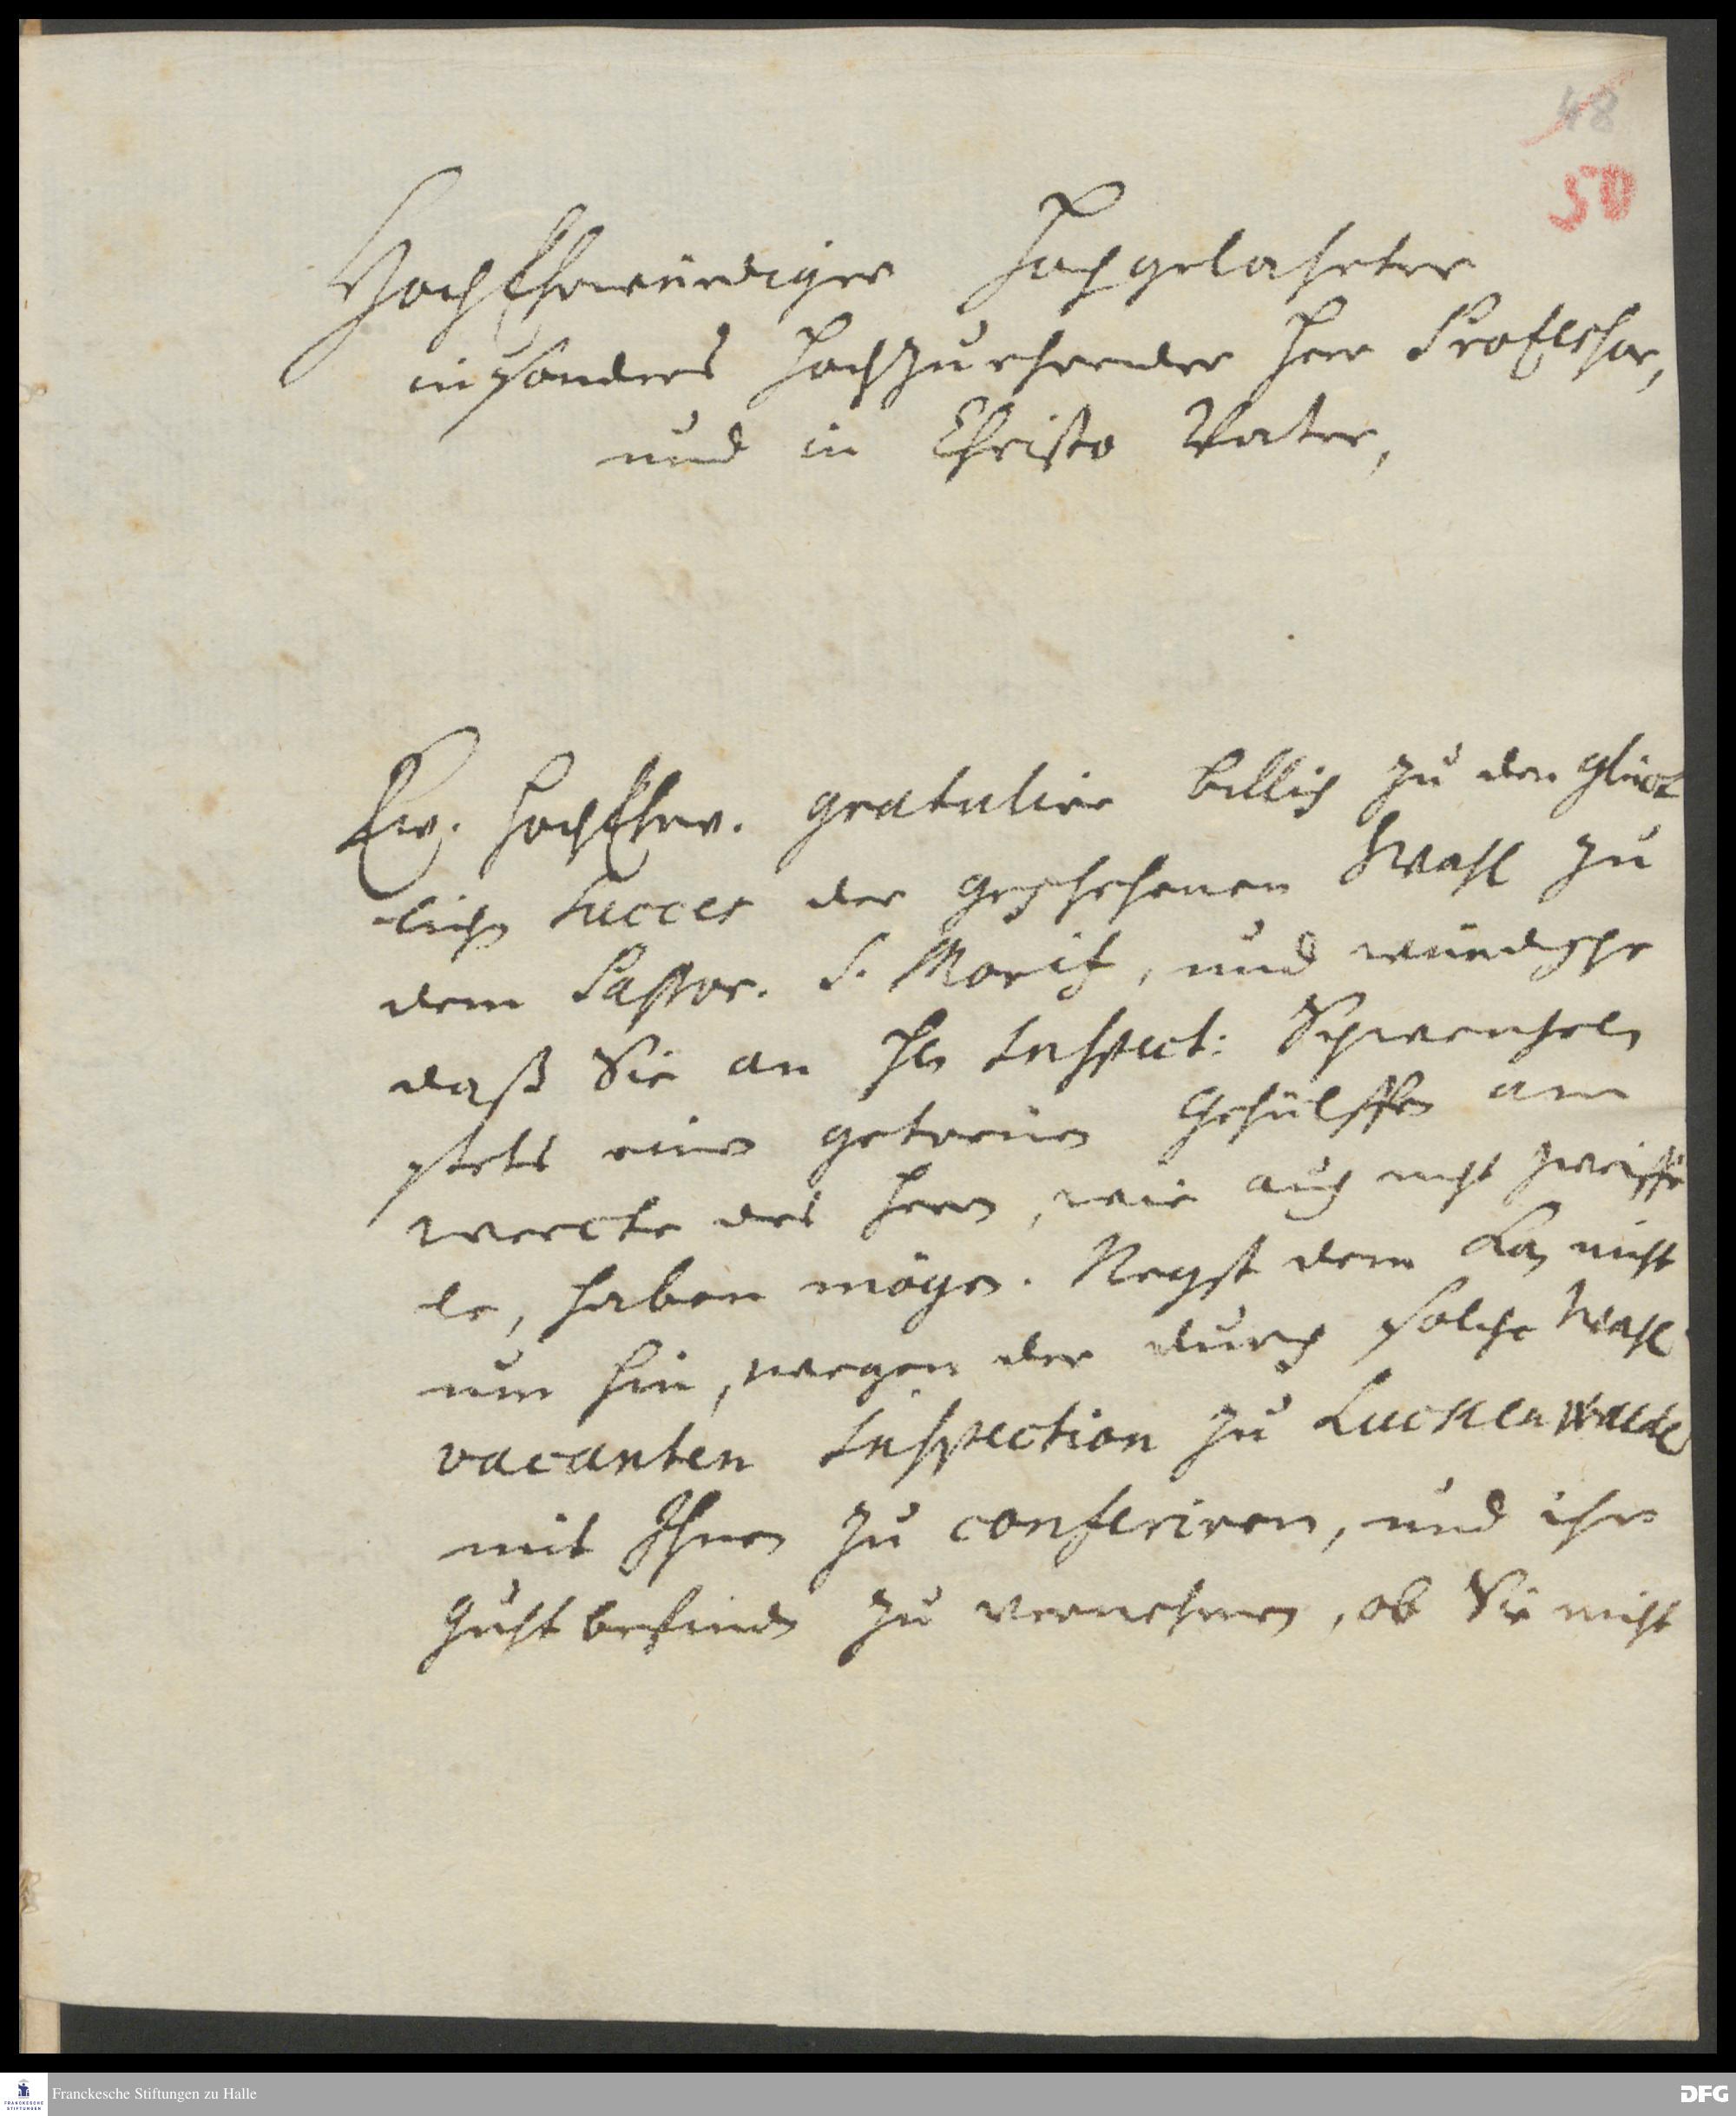 48
50
HochEhrwürdiger Hochgelahrter
insonders Hochzuehrender Herr Professor,
und in Christo Vater,
Ew. HochEhrw. gratulire billich zu den glück
lichen Succes der geschehenen Wahl zu
dem Pastor. S. Moritz, und wündsche
daß Sie an Hn Inspect: Schwentzeln
stets einen getreuen Gehülffen am
wercke des Herrn, wie auch nicht zweiffe
le, haben mögen. Negst dem kan nicht
um hin, wegen der durch solche Wahl
vacanten Inspection zu Luckenwalde
mit Ihnen zu conferiren, und ihr
guht befinden zu vernehmen, ob Sie nicht
Franckesche Stiftungen zu Halle
FRANCKESCHE
STIFTUNGEN
DFG